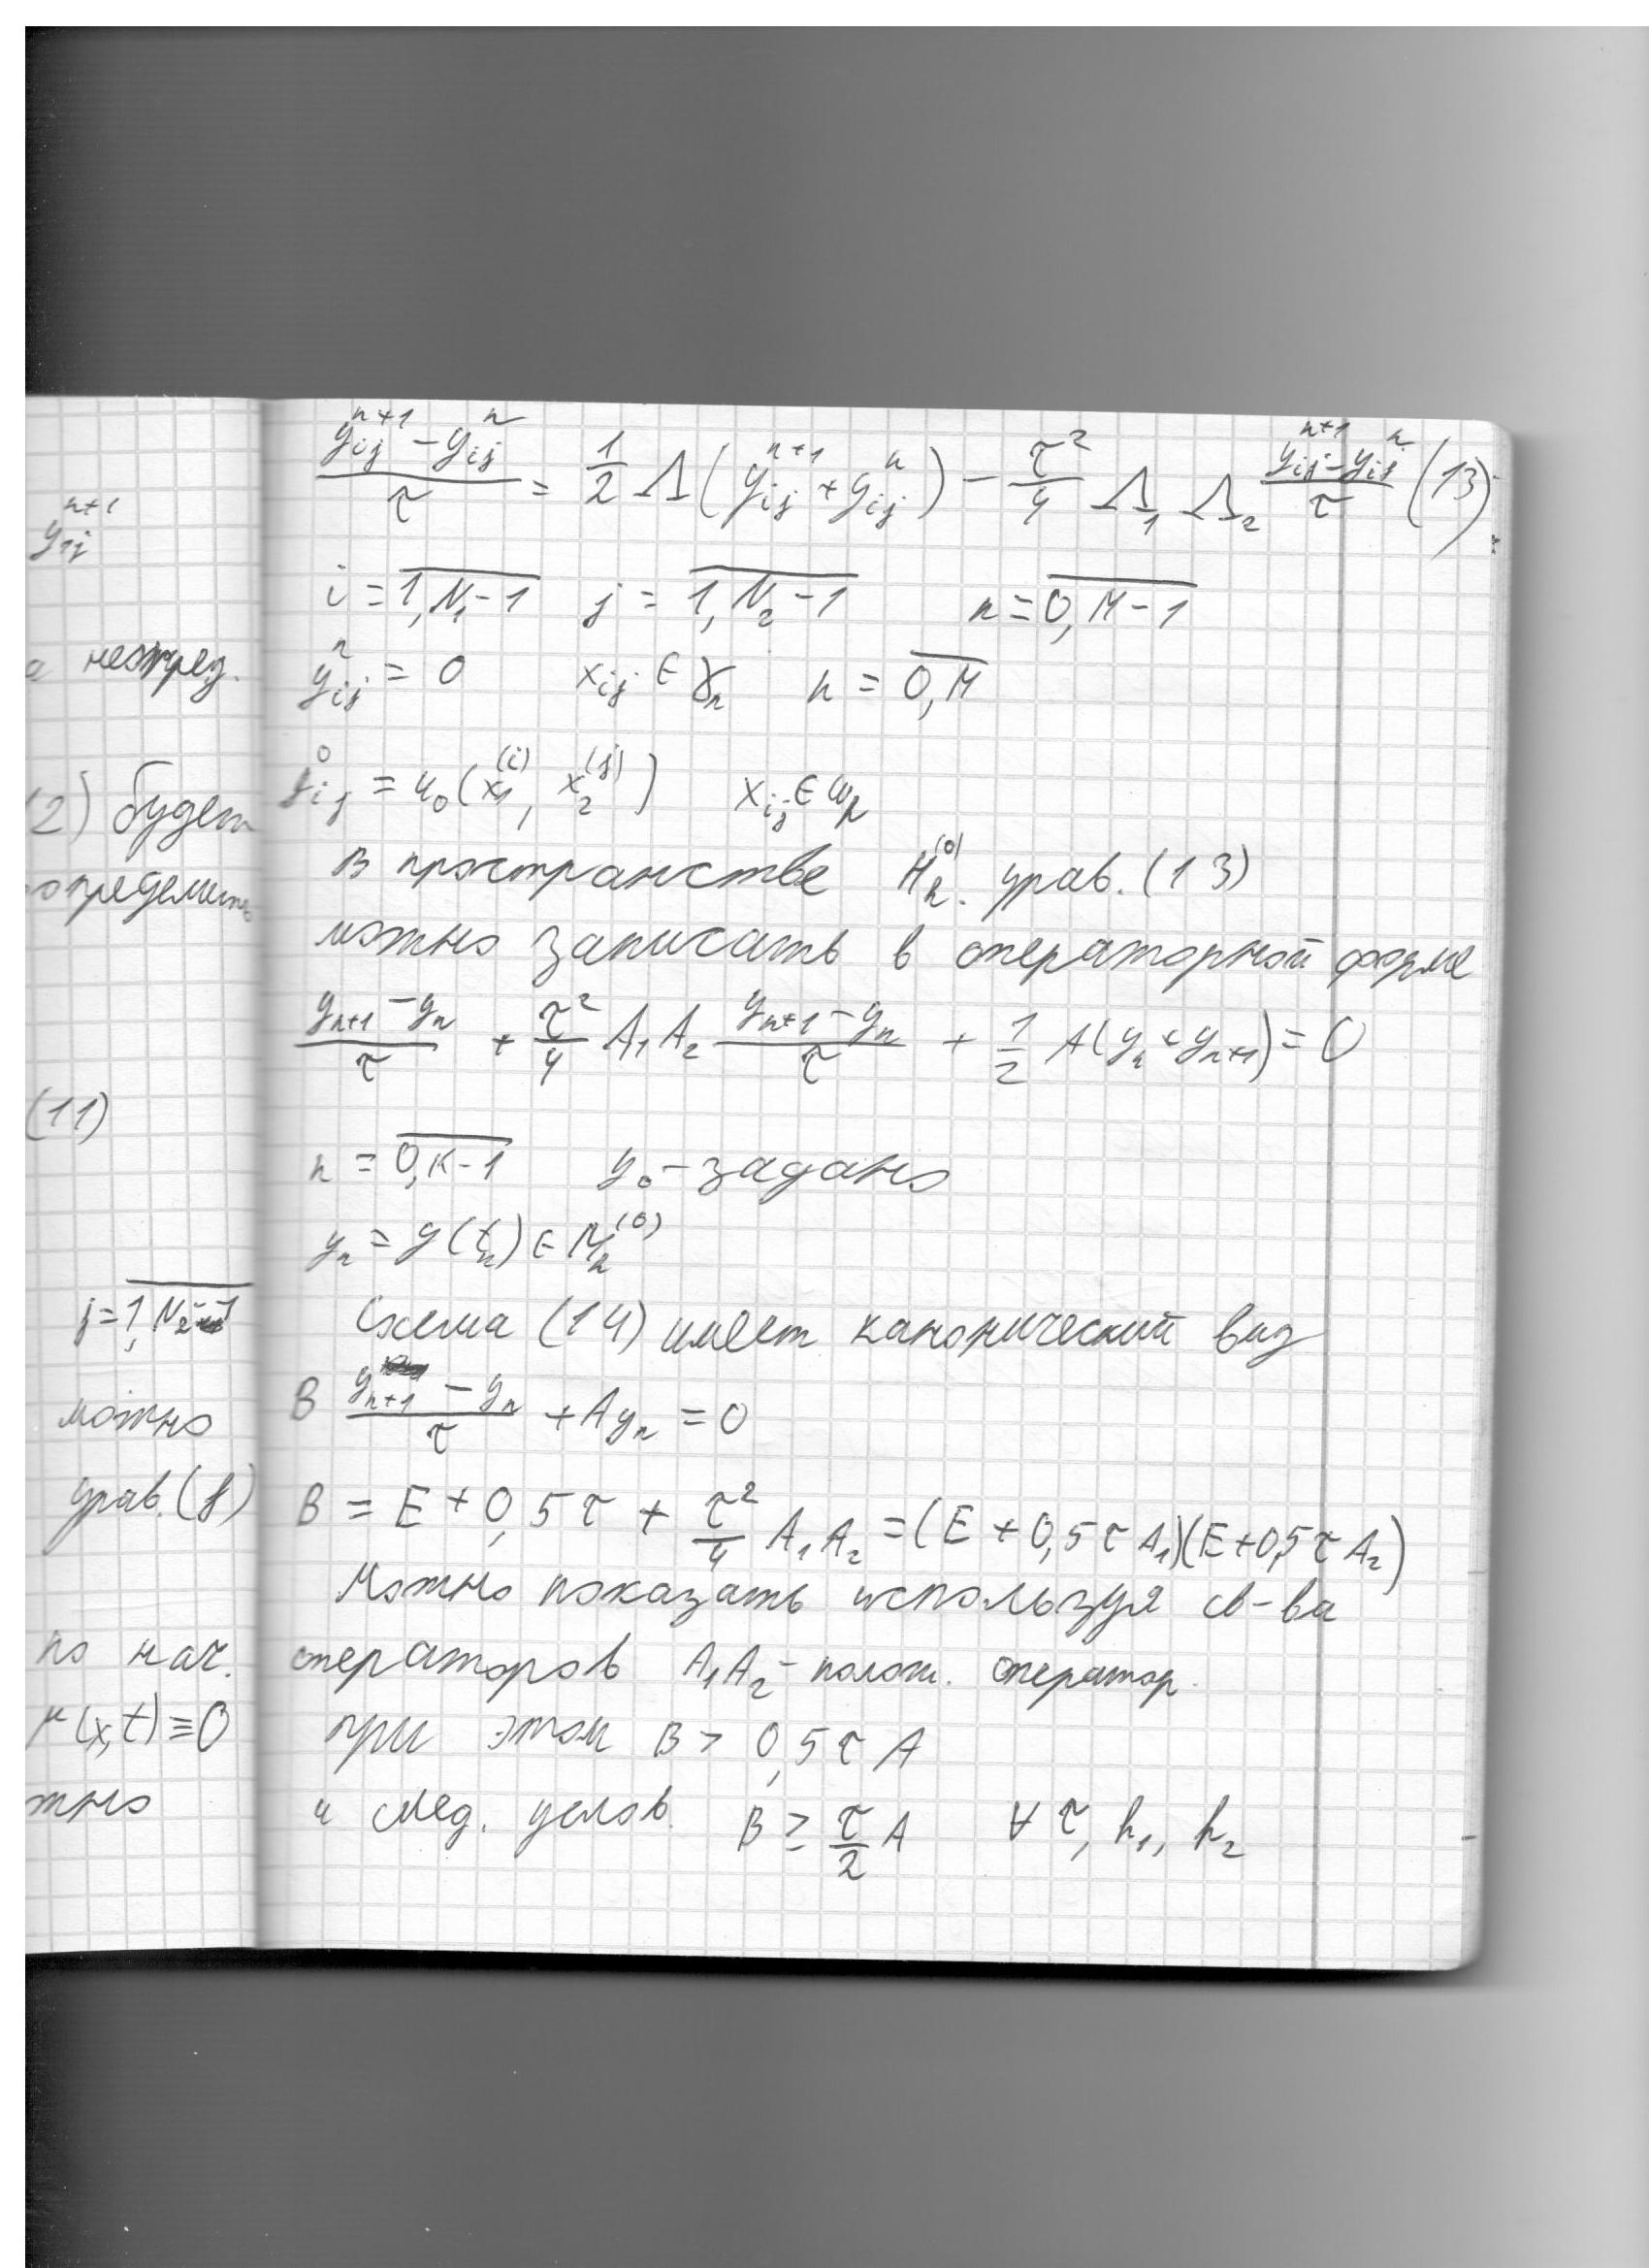 y_{1j}^{n+1}
непред.
2) будет
определить
(11)
j = \overline{1, N_2-1}
можно
урав. (8)
по нач.
μ(x,t) ≡ 0
\frac{y_{ij}^{n+1} - y_{ij}^{n}}{τ} = \frac{1}{2} Λ(y_{ij}^{n+1} + y_{ij}^{n}) - \frac{τ^2}{4} Λ_1 Λ_2 \frac{y_{ij}^{n+1} - y_{ij}^{n}}{τ} (13)
i = \overline{1, N_1-1} j = \overline{1, N_2-1} n = \overline{0, M-1}
y_{ij}^{n} = 0 x_{ij} ∈ γ_h n = \overline{0, M}
y_{ij}^{0} = u_0(x_1^{(i)}, x_2^{(j)}) x_{ij} ∈ ω_h
в пространстве H_h^{(0)} урав. (13)
можно записать в операторной форме
\frac{y_{n+1} - y_n}{τ} + \frac{τ^2}{4} A_1 A_2 \frac{y_{n+1} - y_n}{τ} + \frac{1}{2} A(y_n + y_{n+1}) = 0
n = \overline{0, K-1} y_0 - задано
y_n = y(t_n) ∈ H_h^{(0)}
Схема (14) имеет канонический вид
B \frac{y_{n+1} - y_n}{τ} + A y_n = 0
B = E + 0,5τ + \frac{τ^2}{4} A_1 A_2 = (E + 0,5τ A_1)(E + 0,5τ A_2)
Можно показать используя св-ва
операторов A_1 A_2 - полож. оператор.
при этом B > 0,5τ A
и след. услов. B ≥ \frac{τ}{2} A ∀ τ, h_1, h_2